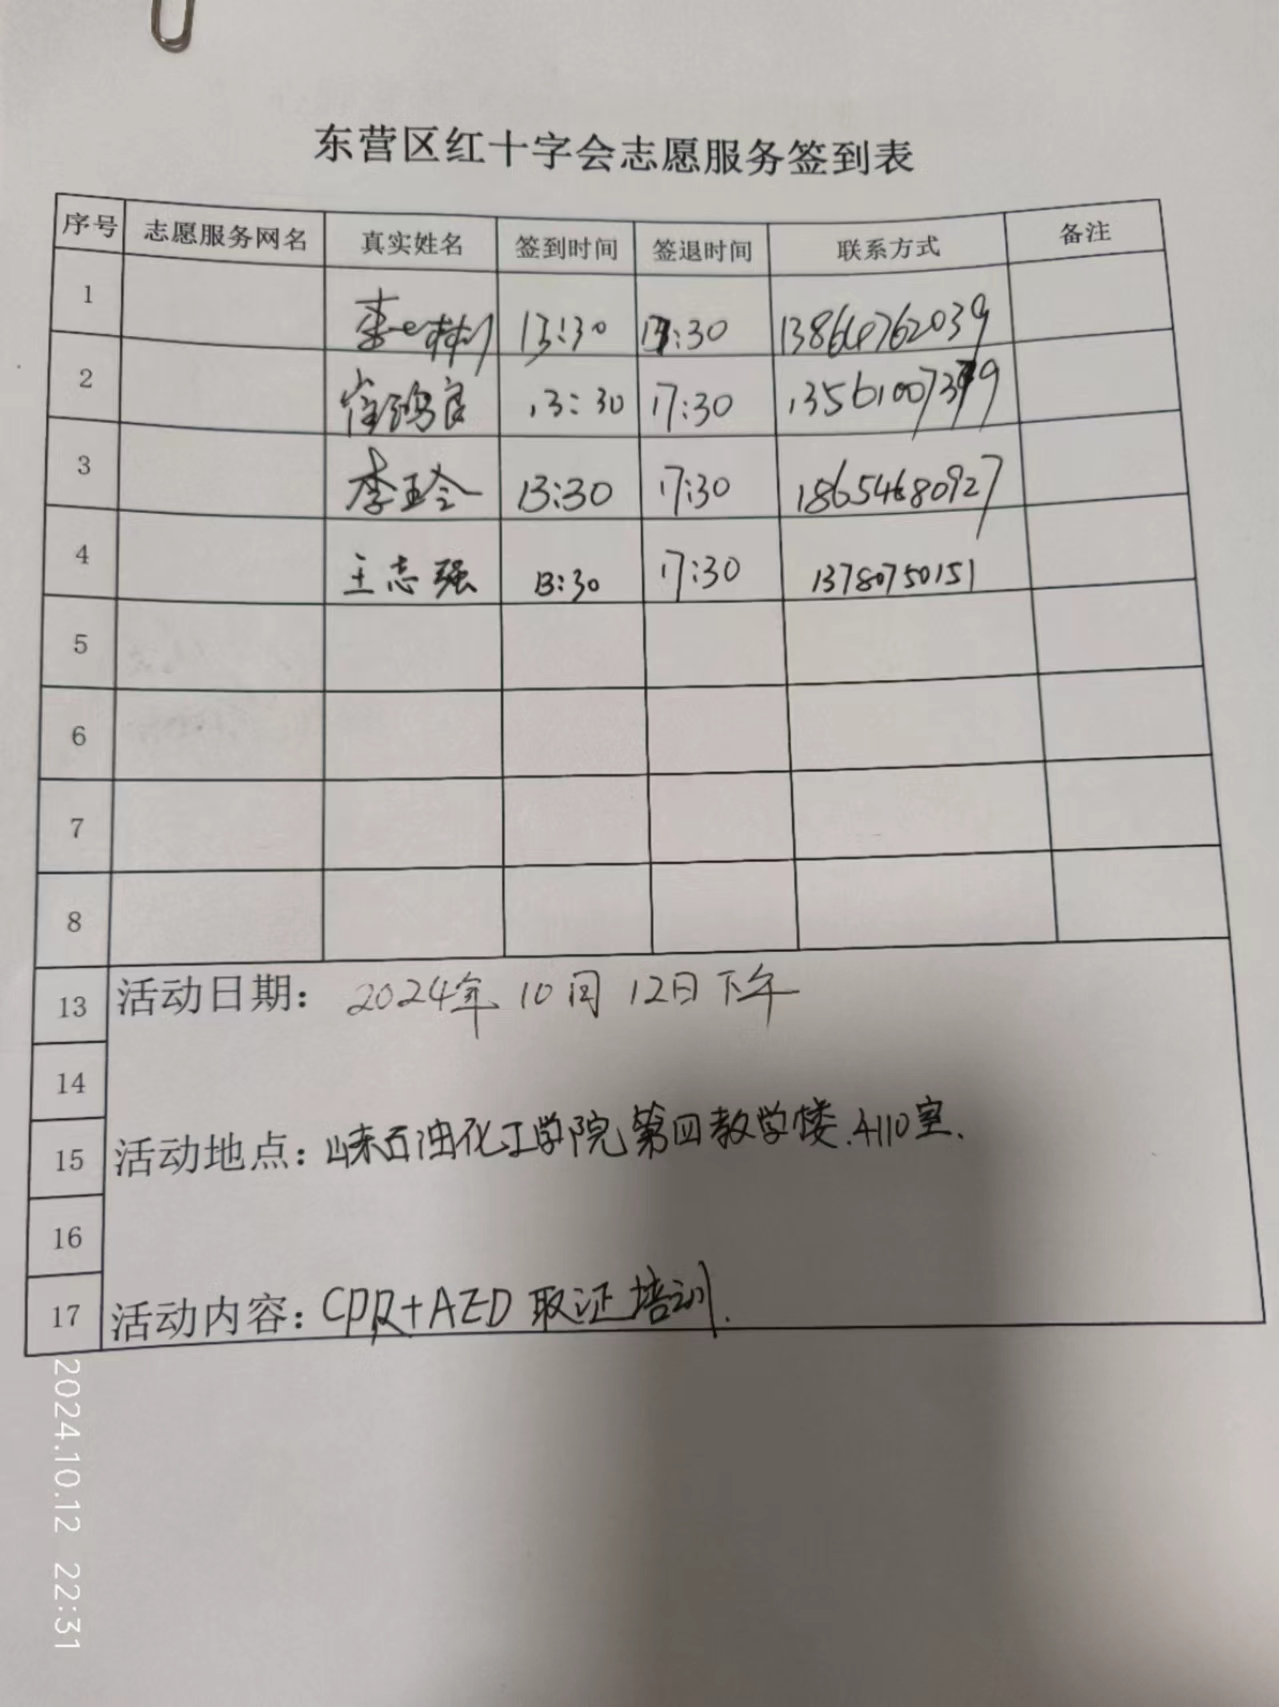 东营区红十字会志愿服务签到表
序号 志愿服务网名 真实姓名 签到时间 签退时间 联系方式 备注
1 13:30 17:30 13864762039
2 崔鸿良 13:30 17:30
3 李玉玲 13:30 17:30 18654680927
4 王志强 13:30 17:30 13780750151
5
6
7
8
13 活动日期： 2024年 10月 12日下午
14
15 活动地点：石油化工学院第四教学楼.4110室.
16
17 活动内容：CPR+AED取证培训.
2024.10.12 22:31